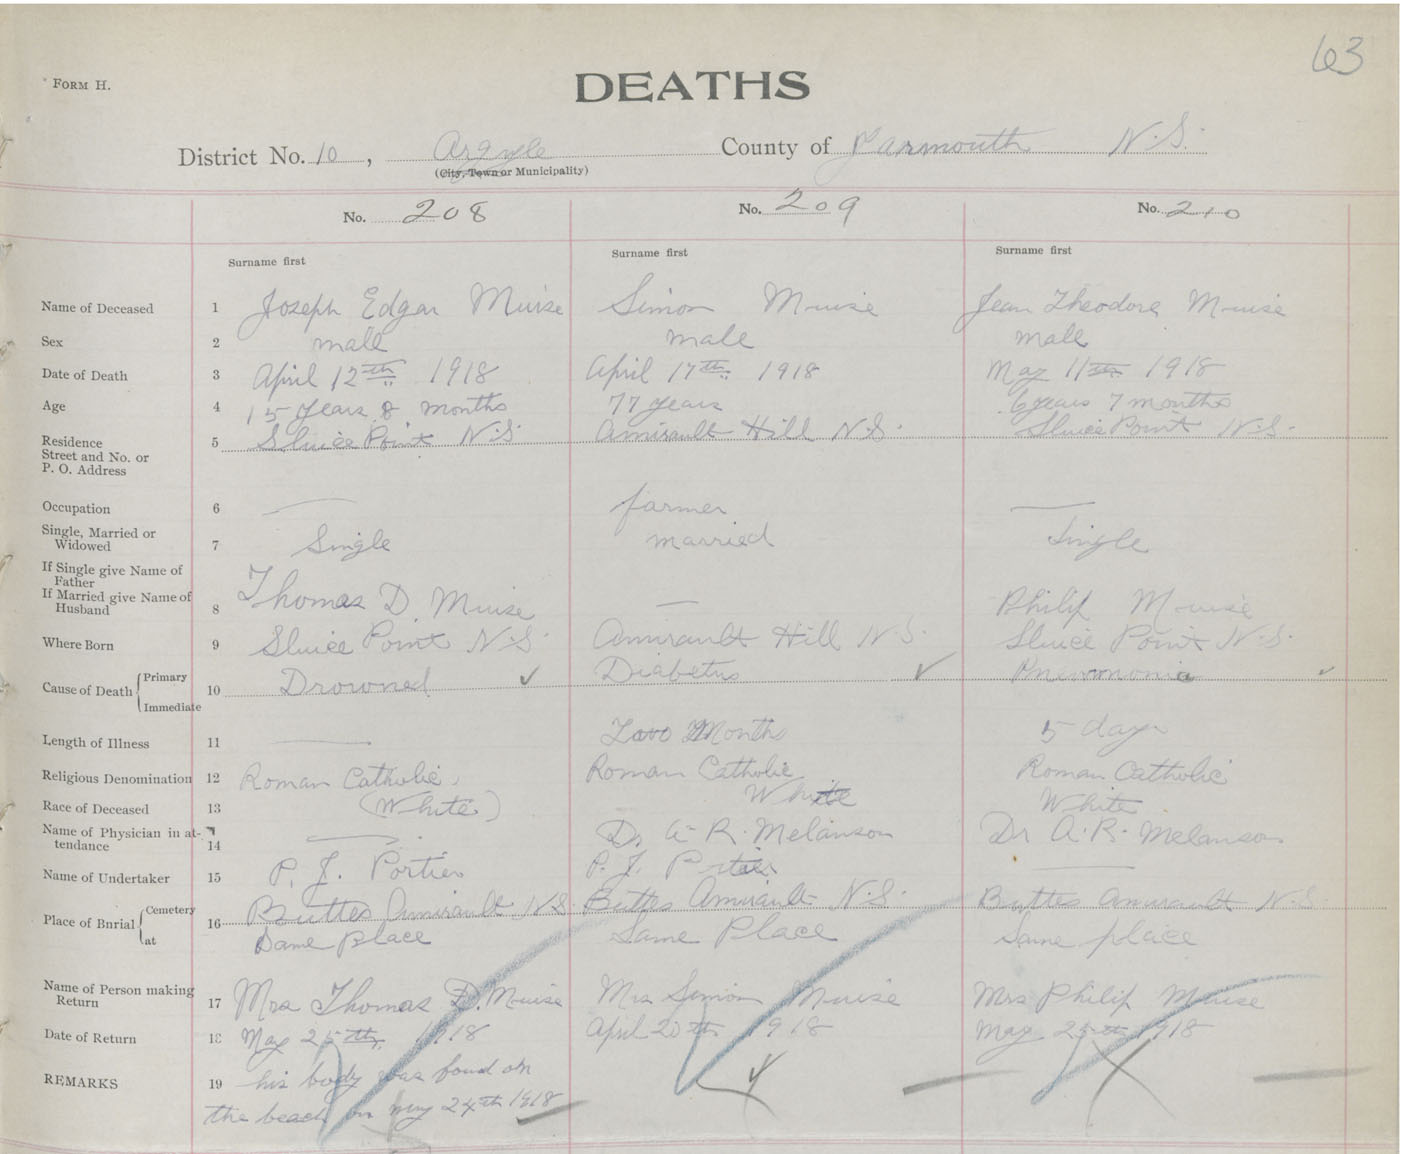 63
FORM H.
DEATHS
District No. 10, Argyle County of Yarmouth N.S.
(City, Town or Municipality)
No. 208 No. 209 No. 210
Surname first Surname first Surname first
Name of Deceased 1 Joseph Edgar Muise Simon Muise Jean Theodore Muise
Sex 2 male male male
Date of Death 3 April 12th 1918 April 17th 1918 May 11th 1918
Age 4 15 years 8 months 77 years 6 years 7 months
Residence 5 Sluice Point N.S. Amirault Hill N.S. Sluice Point N.S.
Street and No. or
P. O. Address
Occupation 6 — farmer —
Single, Married or
Widowed 7 Single married Single
If Single give Name of
Father
If Married give Name of
Husband 8 Thomas D. Muise — Philip Muise
Where Born 9 Sluice Point N.S. Amirault Hill N.S. Sluice Point N.S.
Cause of Death { Primary
10 Drowned ✓ Diabetus ✓ Pneumonia ✓
Immediate
Length of Illness 11 — Two Months 5 days
Religious Denomination 12 Roman Catholic Roman Catholic Roman Catholic
Race of Deceased 13 (White) White White
Name of Physician in at-
tendance 14 — Dr A. R. Melanson Dr A. R. Melanson
Name of Undertaker 15 P. J. Portier P. J. Portier —
Place of Burial { Cemetery 16 Buttes Amirault N.S. Buttes Amirault N.S. Buttes Amirault N.S.
at Same place Same Place Same place
Name of Person making
Return 17 Mrs Thomas D. Muise Mrs Simon Muise Mrs Philip Muise
Date of Return 18 May 25th 1918 April 20th 1918 May 25th 1918
REMARKS 19 his body was found on
the beach on may 24th 1918